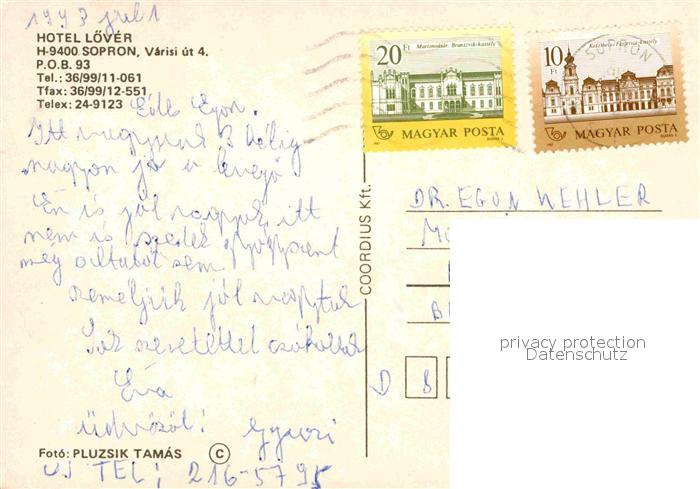 1993 júl 1
HOTEL LŐVÉR
H-9400 SOPRON, Várisi út 4.
P.O.B. 93
Tel.: 36/99/11-061
Tfax: 36/99/12-551
Telex: 24-9123
Édes Egon.
Itt vagyunk 3 hétig
nagyon jó a levegő
Én is jól vagyok, itt
nem is szedek gyógyszert
még altatót sem.
reméljük jól vagytok
Sok szeretettel csókollak
Éva
üdvözöl: Gyuri
Fotó: PLUZSIK TAMÁS C
UJ TEL: 216-5795
COORDIUS Kft.
20 Ft
Martonvásár. Brunszvik-kastély
MAGYAR POSTA
10 Ft
Keszthely, Festetics-kastély
MAGYAR POSTA
SOPRON
DR. EGON WEHLER
D B
privacy protection
Datenschutz